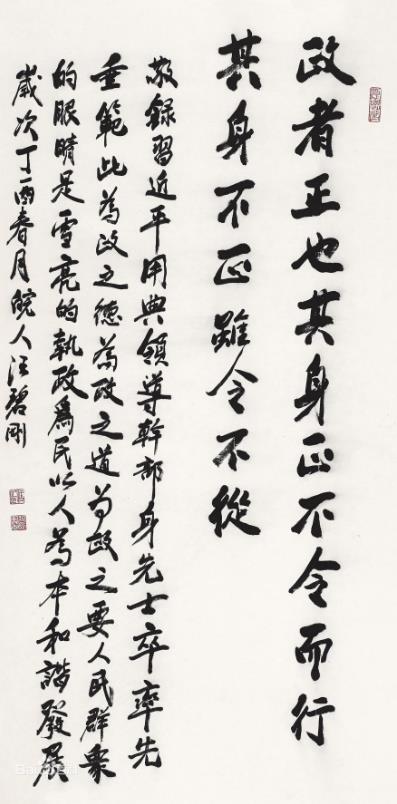 政者正也其身正不令而行
其身不正雖令不從
敬錄習近平用典領導幹部身先士卒率先
垂範此為政之德為政之道為政之要人民群衆
的眼睛是雪亮的執政為民以人為本和諧發展
歲次丁酉春月皖人汪碧剛